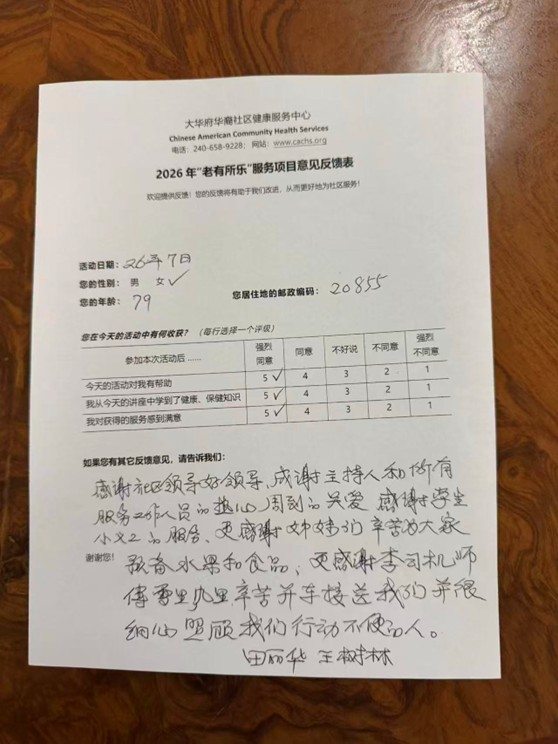 大华府华裔社区健康服务中心
Chinese American Community Health Services
电话：240-658-9228； 网站：www.cachs.org
2026 年“老有所乐”服务项目意见反馈表
欢迎提供反馈！您的反馈将有助于我们改进，从而更好地为社区服务！
活动日期：26年7日
您的性别： 男 女✓
您的年龄： 79 您居住地的邮政编码： 20855
您在今天的活动中有何收获？ （每行选择一个评级）
参加本次活动后 …… 强烈同意 同意 不好说 不同意 强烈不同意
今天的活动对我有帮助 5✓ 4 3 2 1
我从今天的讲座中学到了健康、保健知识 5✓ 4 3 2 1
我对获得的服务感到满意 5✓ 4 3 2 1
如果您有其它反馈意见，请告诉我们：
感谢社区领导好领导，感谢主持人和所有
服务工作人员的热心周到的关爱 感谢学生
小义工的服务、更感谢姊妹们辛苦为大家
谢谢您！ 预备水果和食品、更感谢李司机师
傅 里 里辛苦开车接送我们并很
细心照顾我们行动不便的人。
田丽华 王树林